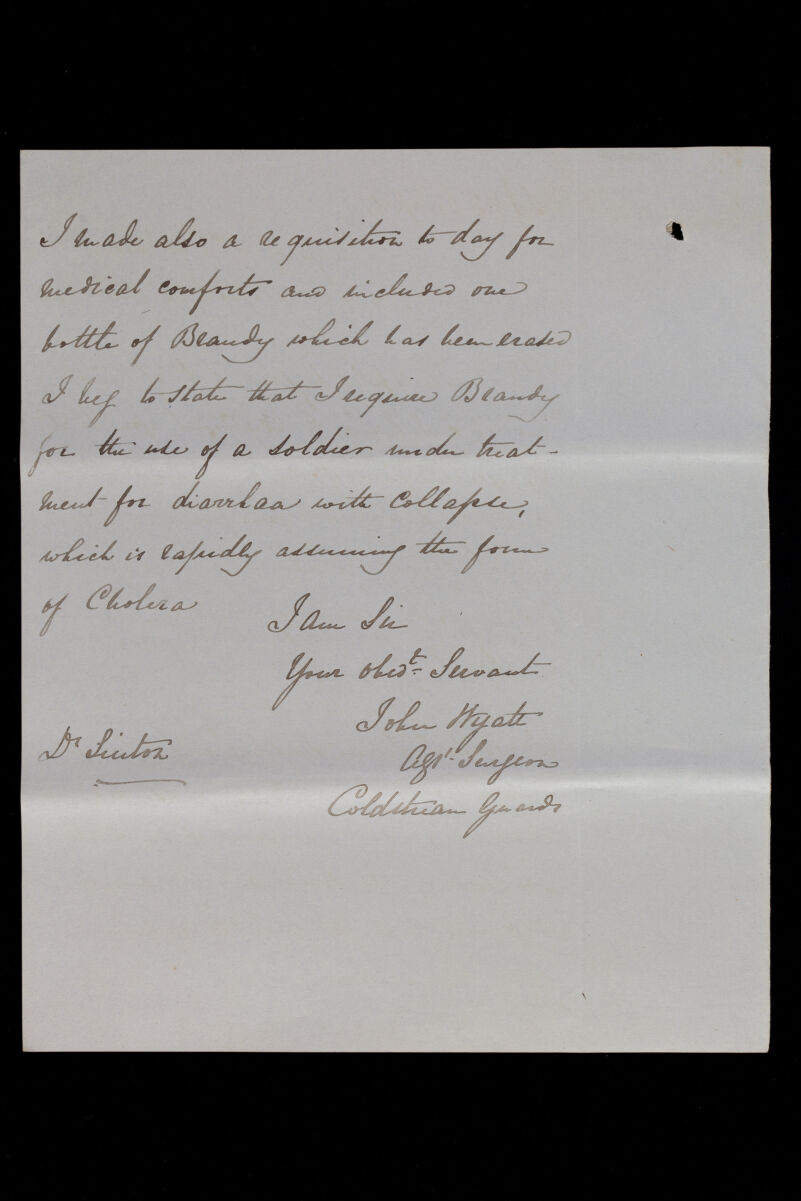 I made also a requisition to day for
medical comforts and included one
bottle of Brandy which has been erased
I beg to state that I require Brandy
for the use of a soldier under treat-
ment for diarrhœa with Collapse,
which is rapidly assuming the form
of Cholera
I am Sir
Your obedt Servant
John Wyatt
Dr Linton
Asst Surgeon
Coldstream Guards